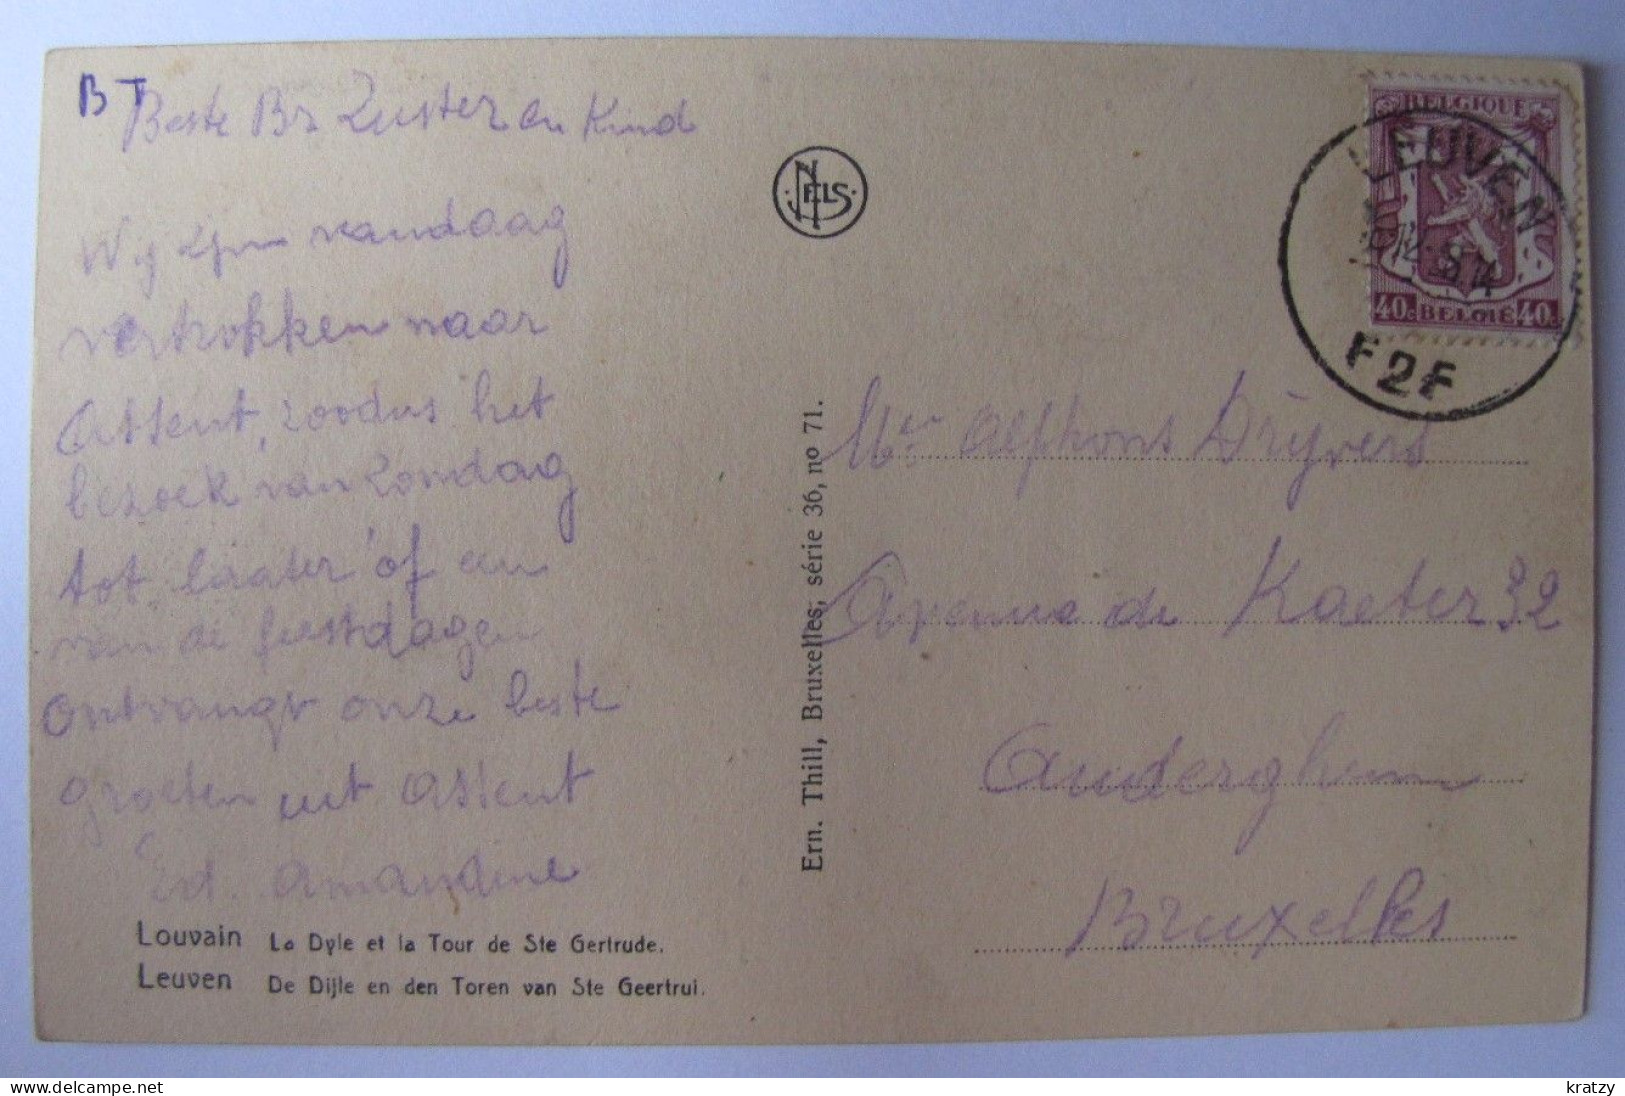 BT
Beste Br Zuster en Kind
Wij zijn vandaag
vertrokken naar
Assent, zoodus het
bezoek van Zondag
tot laater of en
van de feestdagen
Ontvangt onze beste
groeten uit Assent
Ed. Amandine
Louvain La Dyle et la Tour de Ste Gertrude.
Leuven De Dijle en den Toren van Ste Geertrui.
NELS
Ern. Thill, Bruxelles, série 36, no 71.
BELGIQUE
40c BELGIË 40c
LEUVEN
F2F
Mr Alphons Drijvers
Avenue de Kaeter 32
Auderghem
Bruxelles
kratzy
delcampe.net